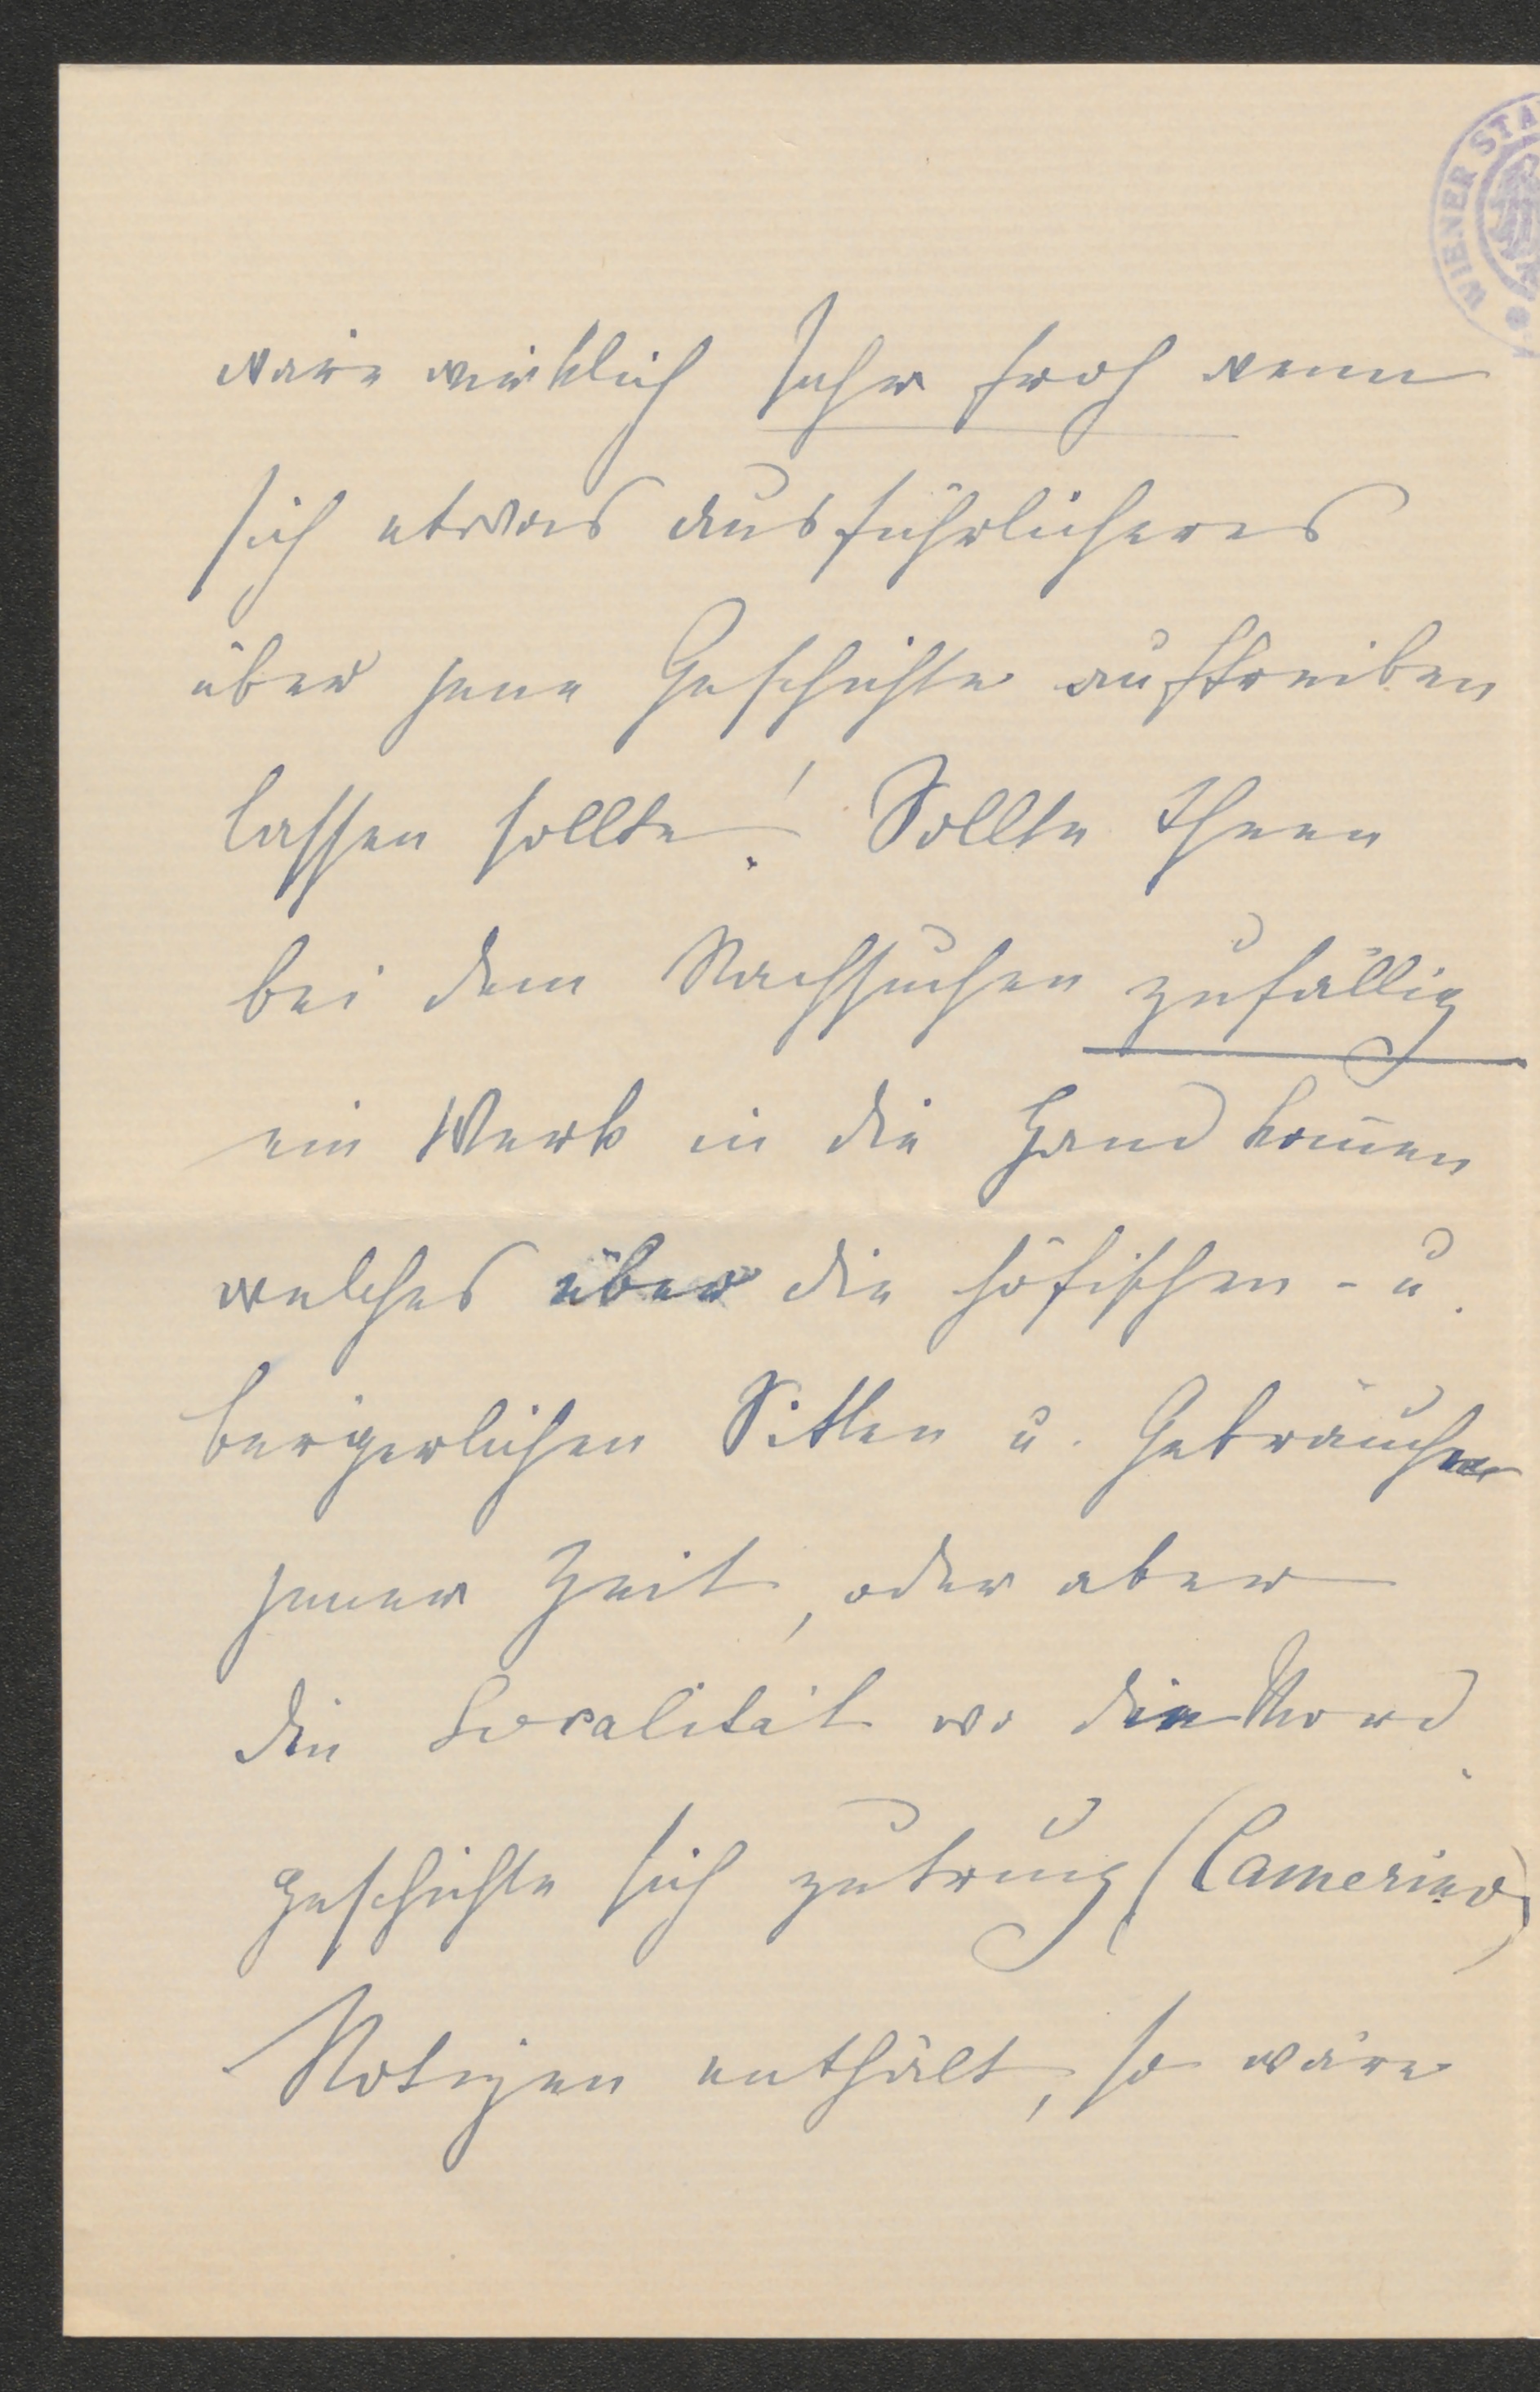 WIENER STA
wäre wirklich sehr froh wenn
sich etwas ausführlicheres
über jene Geschichte auftreiben
lassen sollte! Sollte Ihnen
bei dem Nachsuchen zufällig
ein Werk in die Hand kom̅en
welches über die höfischen - u.
bürgerlichen Sitten u. Gebräuche
jener Zeit, oder aber
die Localität wo die Mord
geschichte sich zutrug (Camerino)
Notizen enthält, so wäre